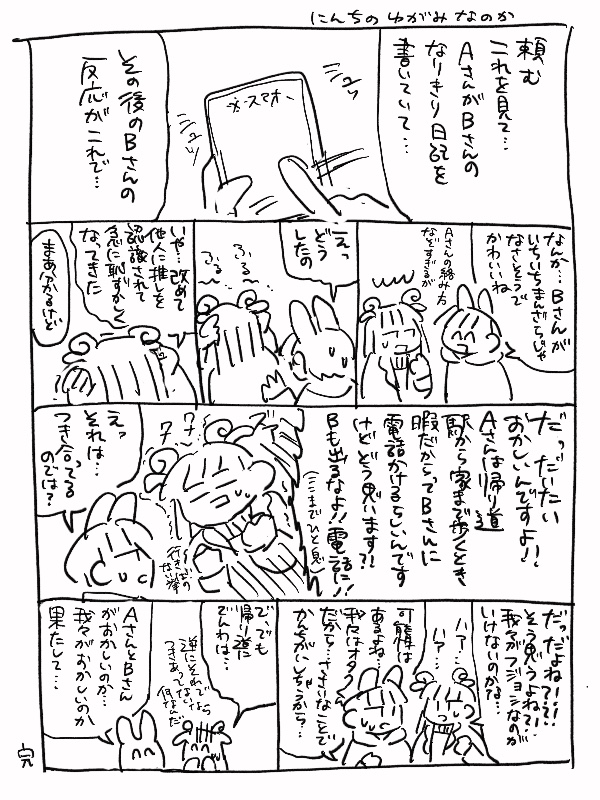 にんちの ゆがみ なのか
頼む
これを見て…
AさんがBさんの
なりきり日記を
書いていて…
シュッ
スマホ
シュッ
その後のBさんの
反応がこれで…
なんか…Bさんが
いちいちまんざらじゃ
なさそうで
かわいいね
Aさんの絡み方
なぞすぎるが
えっ
どう
したの
ふる
ふる
いや…改めて
他人に推しを
認識されて
急に恥ずかしく
なってきた
まあわかるけど
だっ だいたい
おかしいんですよ!!
Aさんは帰り道
駅から家まで歩くとき
暇だからってBさんに
電話かけるらしいんです
けどどう思います?!
Bも出るなよ!!電話に!!
(ここまでひと息)
ワナ
ワナ
行き場の
ない拳
えっ
それは…
つき合ってる
のでは?
だっだよね!!
そう思うよね?!…
我々がフジョシなのが
いけないのかな…
ハァ…
ハァ…
可能性は
あるよね…
我々はオタク
だから…ささいなことで
かんちがいしちゃうから…
で、でも
帰り道に
でんわは…
逆にそれで
つきあってないなら
何なんだ
AさんとBさん
がおかしいのか…
我々がおかしいのか
果たして…
完